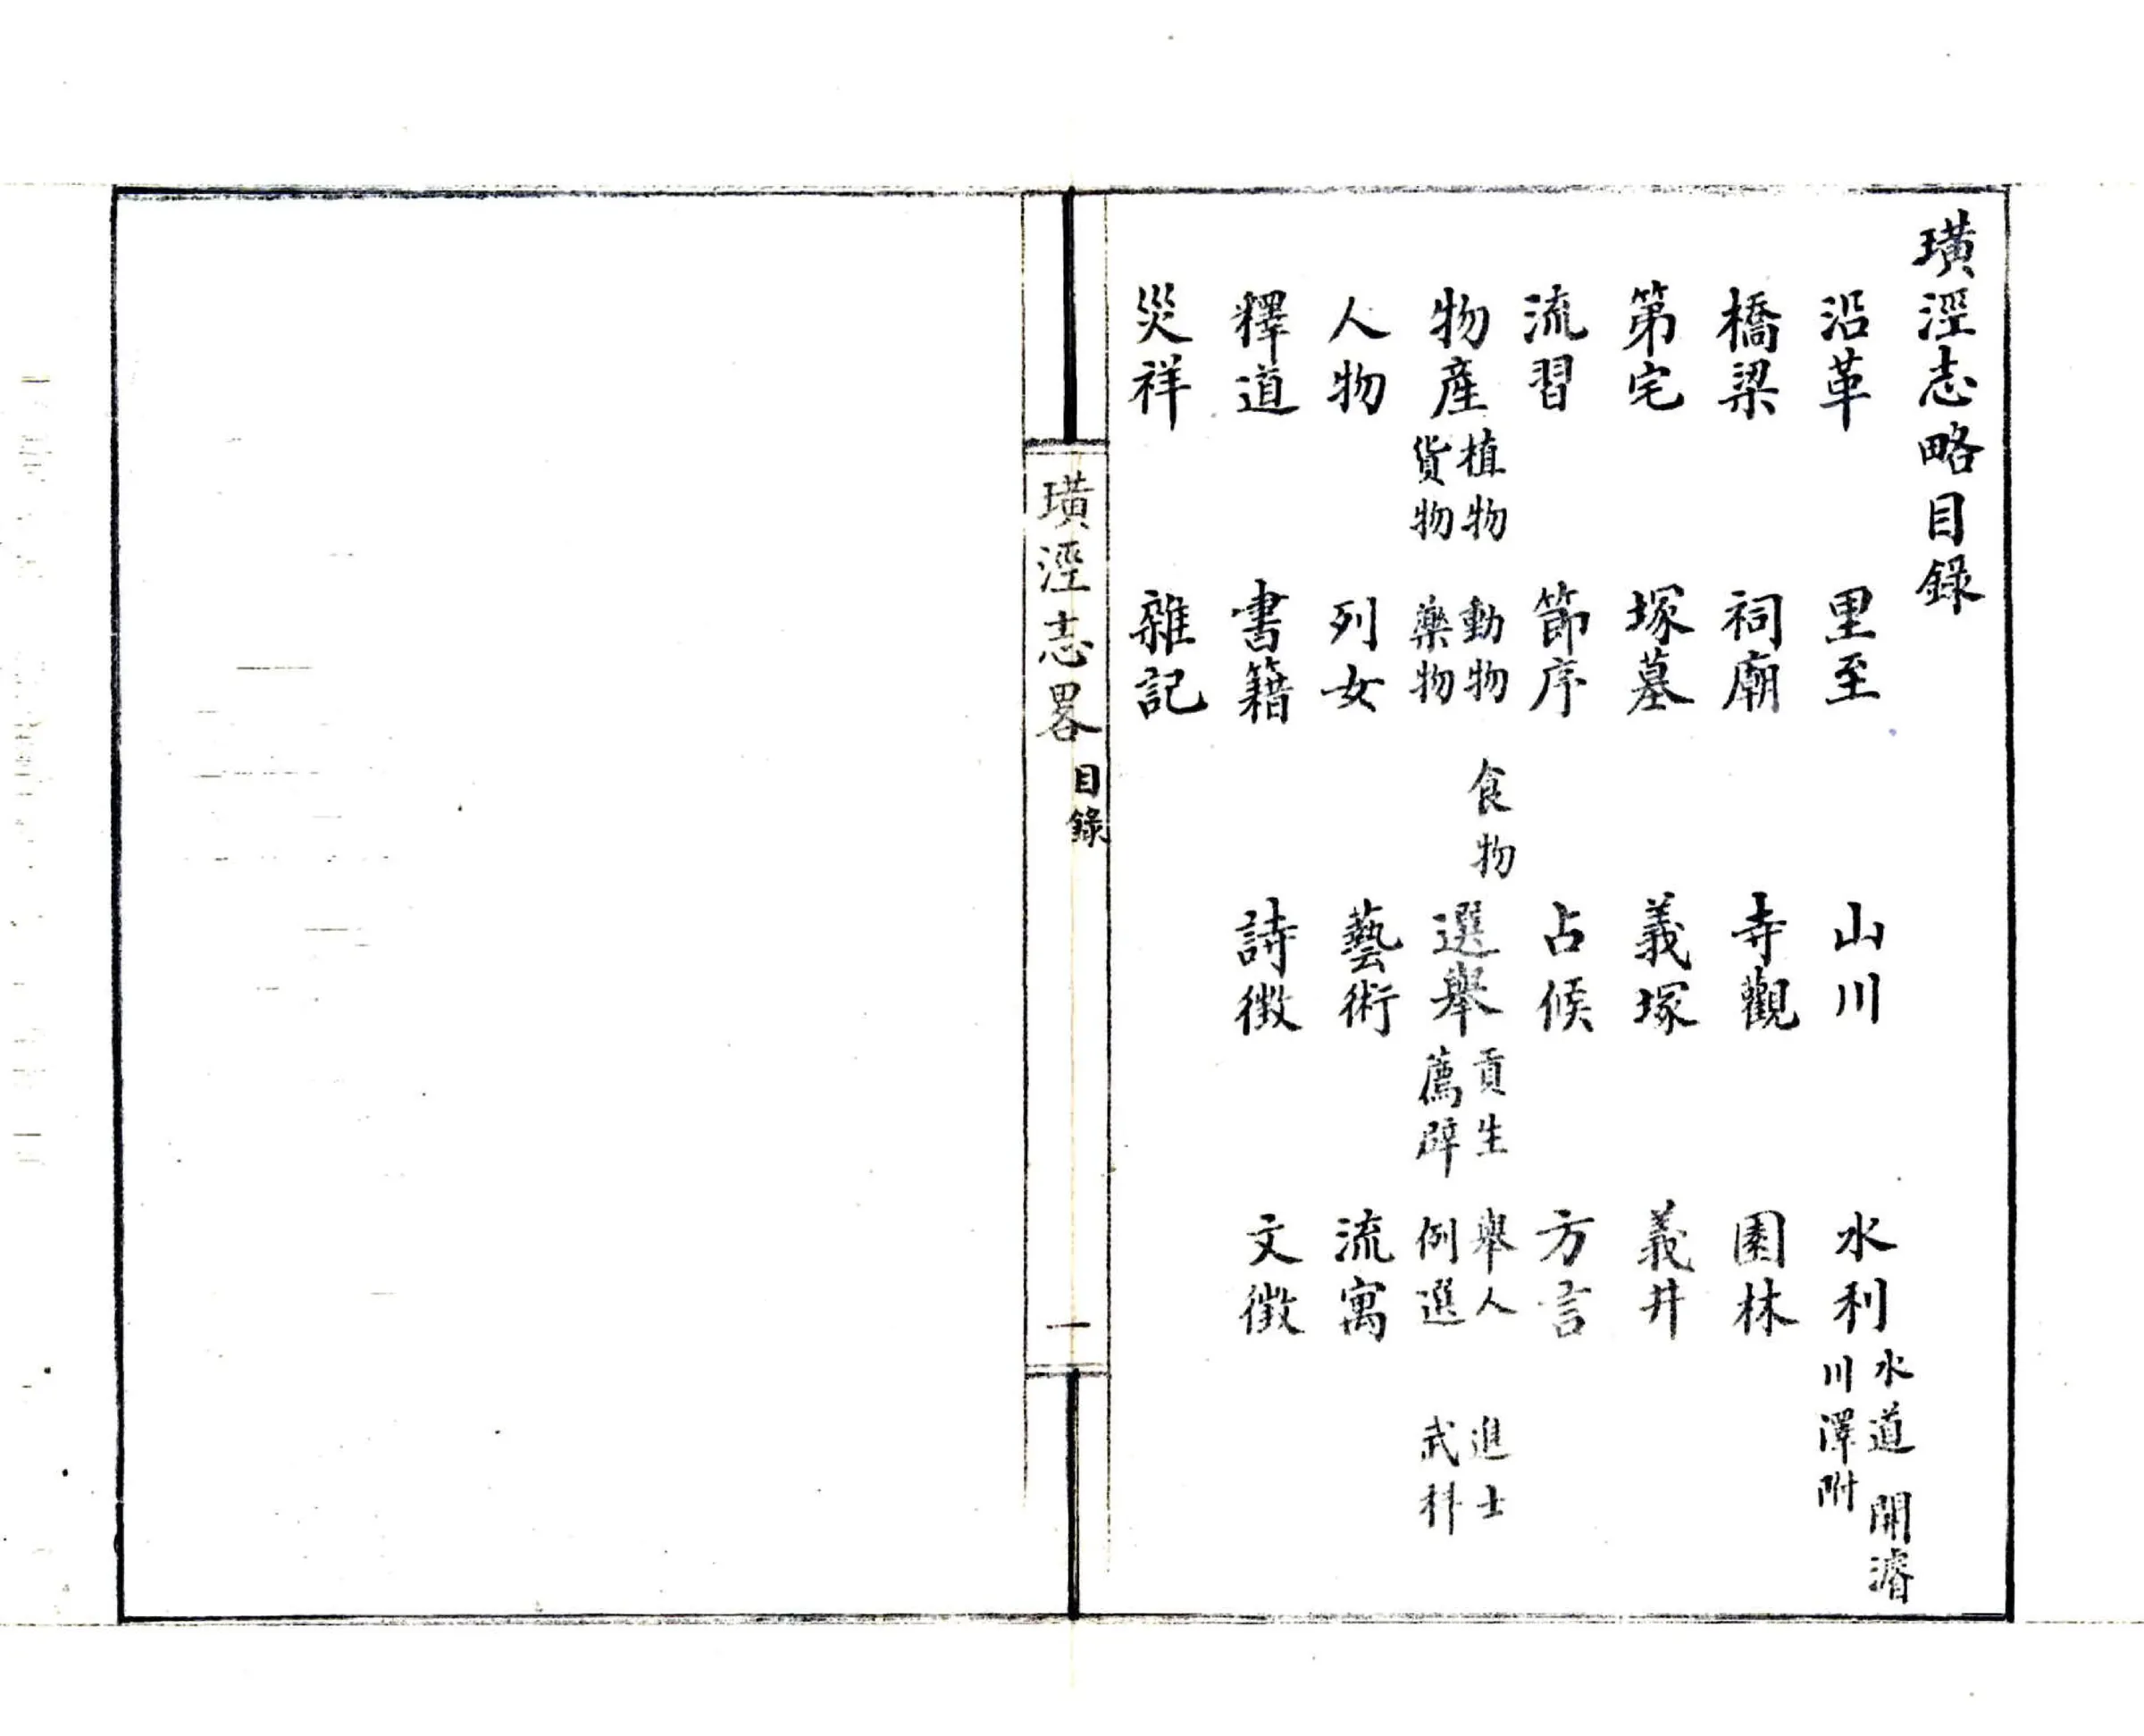 璜涇志略目錄
沿革 里至 山川 水利 水道 開濬 川澤附
橋梁 祠廟 寺觀 園林
第宅 塚墓 義塚 義井
流習 節序 占候 方言
物產 植物 動物 食物 貨物 藥物 選舉 貢生 舉人 進士 薦辟 例選 武科
人物 列女 藝術 流寓
釋道 書籍 詩徵 文徵
災祥 雜記
璜涇志畧 目錄 一